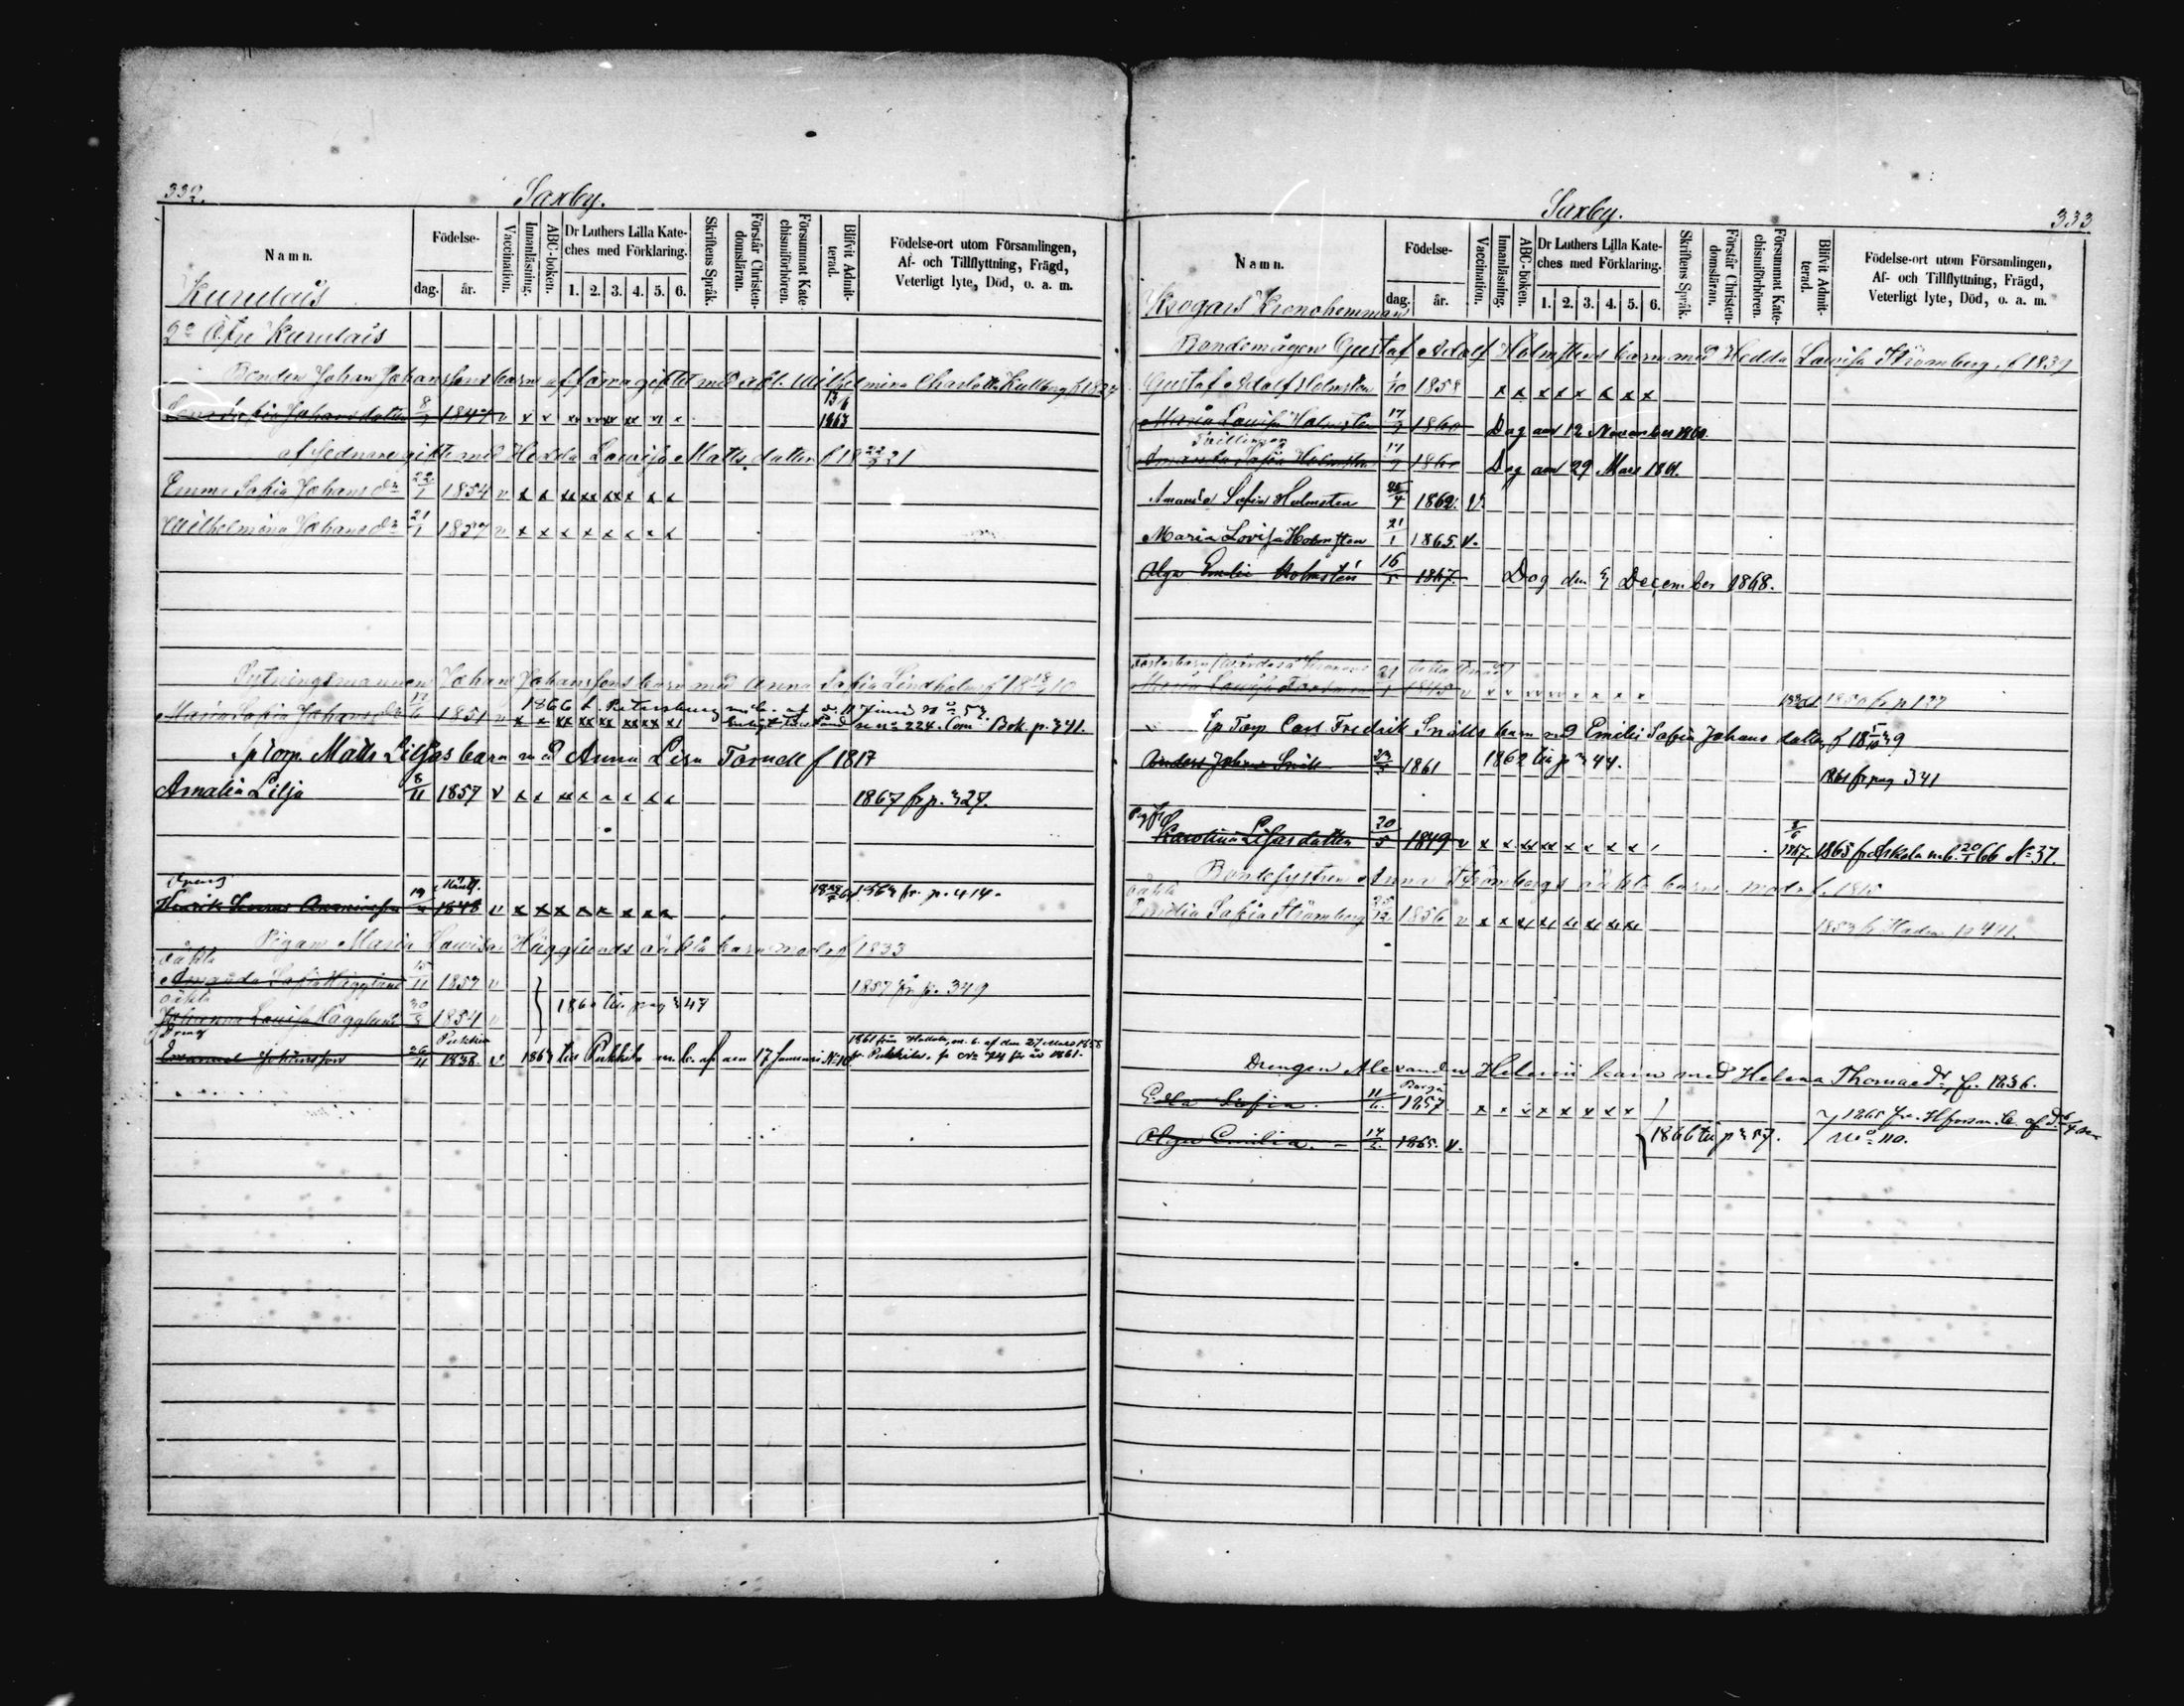 332.
Saxby.
Namn.
Födelse-
dag.
år.
Vaccination.
Innanläsning.
ABC-boken.
Dr Luthers Lilla Kate-
ches med Förklaring.
1. 2. 3. 4. 5. 6.
Skriftens Språk.
Förstår Christen-
domsläran.
Försummat Kate-
chismiförhören.
Blifvit Admit-
terad.
Födelse-ort utom Församlingen,
Af- och Tillflyttning, Frägd,
Veterligt lyte, Död, o. a. m.
Kurulais
2o Öfre Kurulais
Bonden Johan Johanssons barn af förra giftet med afl. Wilhelmina Charlotta Kullberg f 1827
Sofia Johansdotter 8/3 1847 v x x 13/6 1863
af sednare gifte med Hedda Lawisa Matts dotter f 18 22/3 21
Emma Sofia Johansdr 22/1 1854 v x x xx xx xx x x x
Wilhelmina Johansdr 21/1 1857 v x x x x x x x x
Johan Johanssons barn med Anna Sofia Lindholm f 18 18/3 10
Maria Sofia Johansdr 17/6 1851 v 1866 t. Petersburg Bok p. 341.
Sp Torp. Matts Liljas barn med Anna Lisa Tornell f 1817
Amalia Lilja 8/11 1857 v x x xx x x x x x 1867 fr p. 327.
Dreng
Henrik 19/4 1848 v x x x x x x x x fr. p. 414.
Pigan Maria Lawisa Hägglunds oäkta barn moder f 1833
oäkta
Amanda Sofia Hägglund 15/11 1857 v 1857 fr p. 349
oäkta
Johanna Lawisa Hägglund 30/3 1854 v 1860 till pag 347
Dreng
Emanuel Johansson 26/11 1838. v 1867 till Pukkila m. b. af den 17 Januari No 10
1861 från m. b. af den 27 Mars 1858
fr. Pukkila
333
Saxby.
Namn.
Födelse-
dag.
år.
Vaccination.
Innanläsning.
ABC-boken.
Dr Luthers Lilla Kate-
ches med Förklaring.
1. 2. 3. 4. 5. 6.
Skriftens Språk.
Förstår Christen-
domsläran.
Försummat Kate-
chismiförhören.
Blifvit Admit-
terad.
Födelse-ort utom Församlingen,
Af- och Tillflyttning, Frägd,
Veterligt lyte, Död, o. a. m.
Krogars Kronohemman
Bondemågen Gustaf Adolf Holmstens barn med Hedda Lawisa Strömberg f 1839
Gustaf Adolf Holmsten 1/10 1858 x x x x x x x x
Maria Lawisa Holmsten 17/9 1860 Dog den 12 November 1860.
Tvillingar
Amanda Sofia Holmsten 17/9 1860 Dog den 29 Mars 1861.
Amanda Sofia Holmsten 25/4 1862. V.
Maria Lovisa Holmsten 21/1 1865. V.
Olga Emilie Holmstén 16/5 1867. Dog den 3 December 1868.
Fosterbarn
Maria Lawisa 21/1 1845 v 1850 fr p 127
Sp Torp Carl Fredrik Snälls barn med Emilie Sofia Johans dotter f 18 5/10 39
Anders Johan Snäll 1861 1862 till p 344. 1861 fr pag 341
Pig.
Karolina Liljas dotter 20/5 1849 v x x xx xx x x x x 3/6 1867. 1865 fr Askola m. b. 20/1 66 No 37
Bondesystren Anna Strömbergs oäkta barn. moder f. 1815
oäkta
Emilia Sofia Strömberg 25/12 1856 v x x
Drengen Alexander Helenii barn med Helena Thomaedr, f. 1836.
Borgå
Edla Sofia. 11/6. 1857. x x x x x x x x
Olga Emilia. 17/2. 1865. v. 1866 till p 357.
1865 fr. Hfors m. b. af d.
No 110.